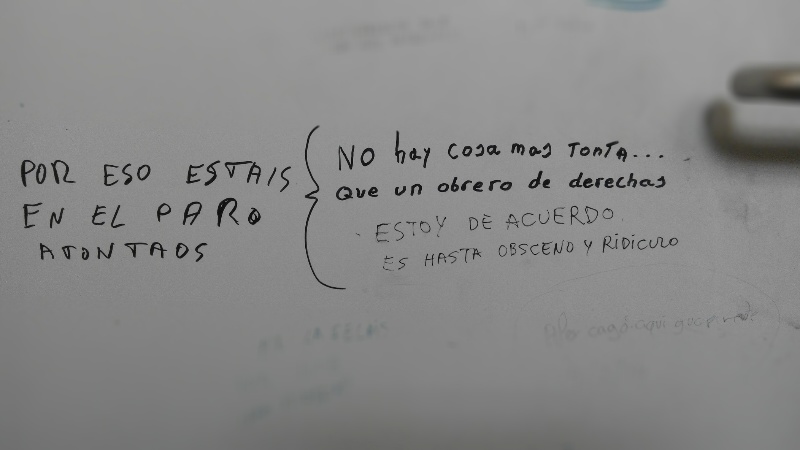 POR ESO ESTAIS
EN EL PARO
ATONTAOS
NO hay cosa mas TONTA...
Que un obrero de derechas
ESTOY DE ACUERDO.
ES HASTA OBSCENO Y RIDICULO